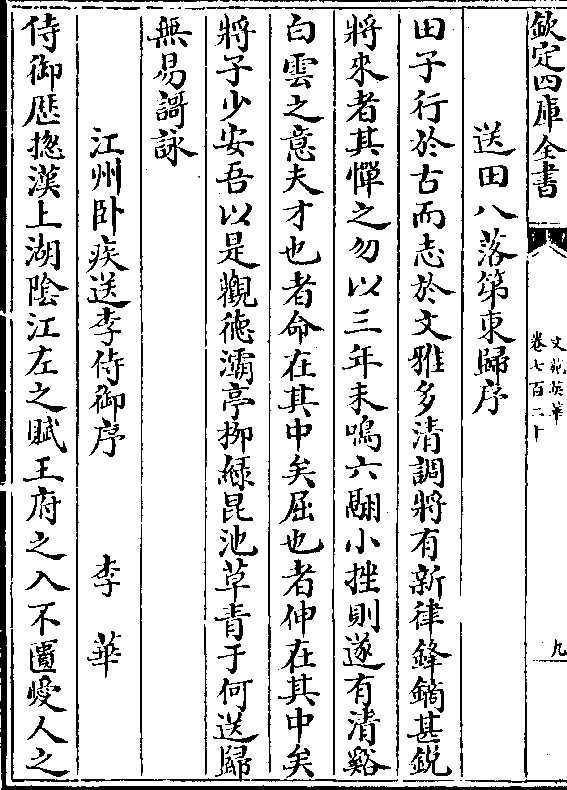 欽定四庫全書
文苑英華
卷七百二十
九
送田八落第東歸序
田子行於古而志於文雅多清調將有新律鋒鏑甚銳
將來者其憚之勿以三年未鳴六翮小挫則遂有清谿
白雲之意夫才也者命在其中矣屈也者伸在其中矣
將子少安吾以是觀徳灞亭栁緑昆池草青于何送歸
無易謌詠
江州卧疾送李侍御序 李華
侍御歴揔漢上湖隂江左之賦王府之入不匱愛人之